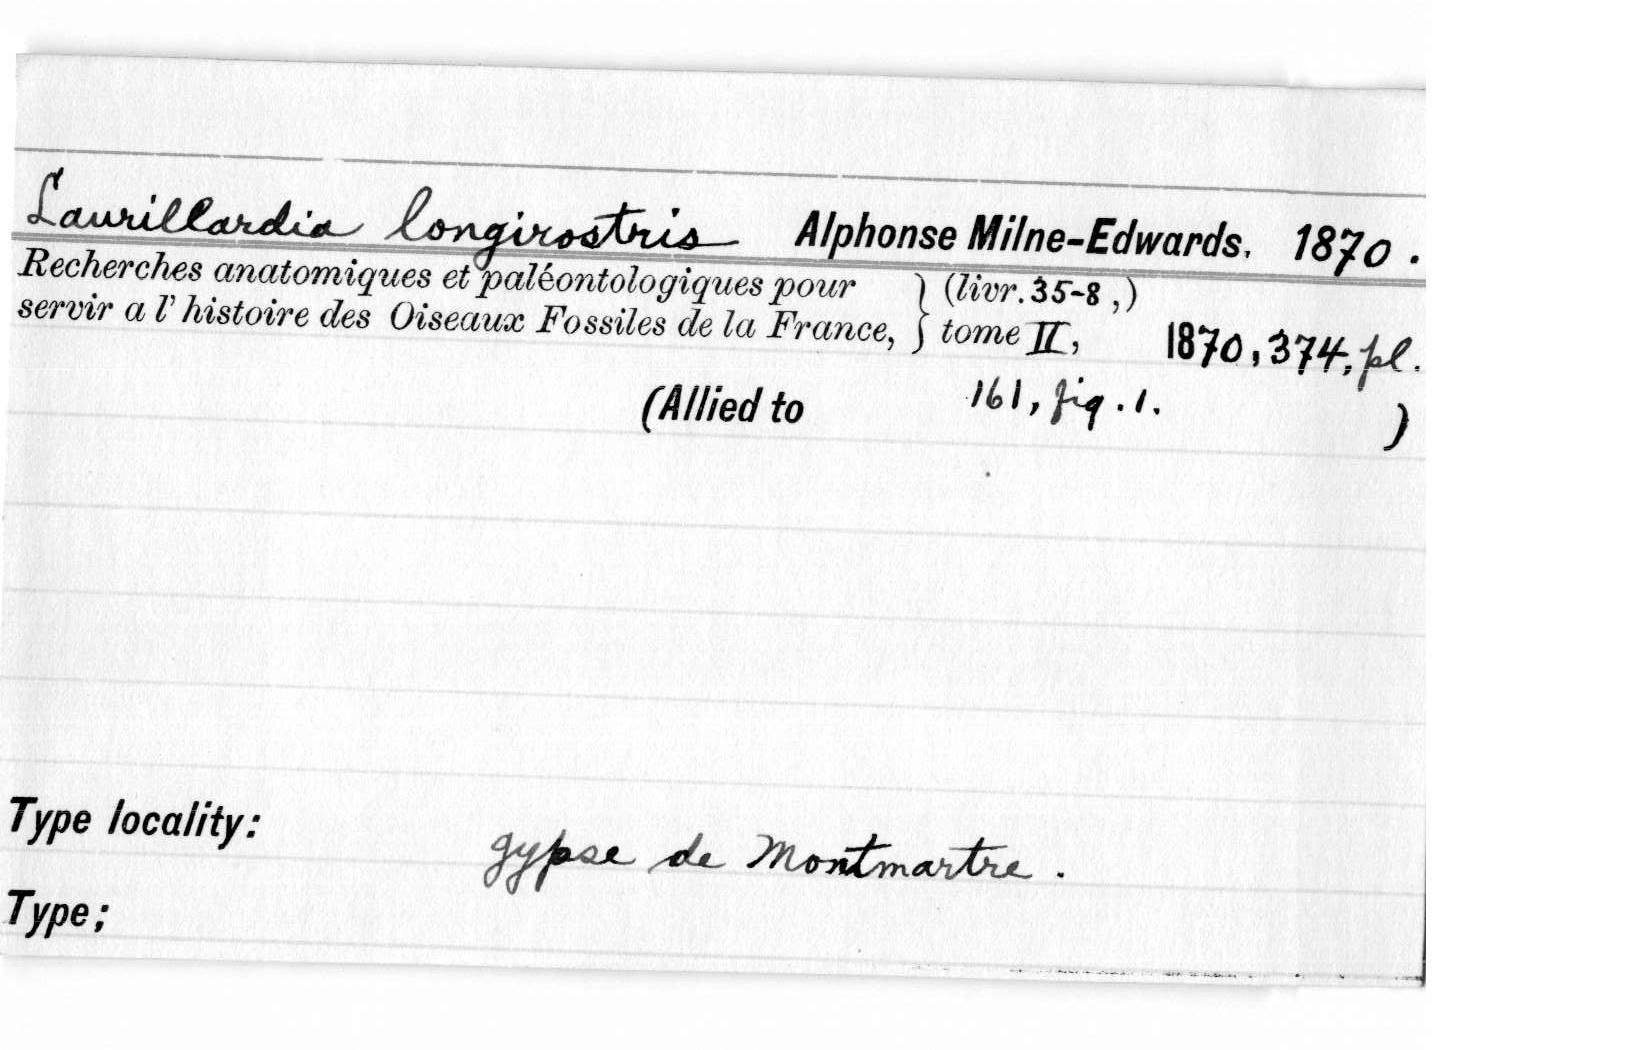 Laurillardia longirostris Alphonse Milne-Edwards. 1870.
Recherches anatomiques et paléontologiques pour } (livr. 35-8,)
servir a l'histoire des Oiseaux Fossiles de la France, } tome II, 1870, 374, pl.
(Allied to 161, fig. 1. )
Type locality: gypse de Montmartre.
Type;